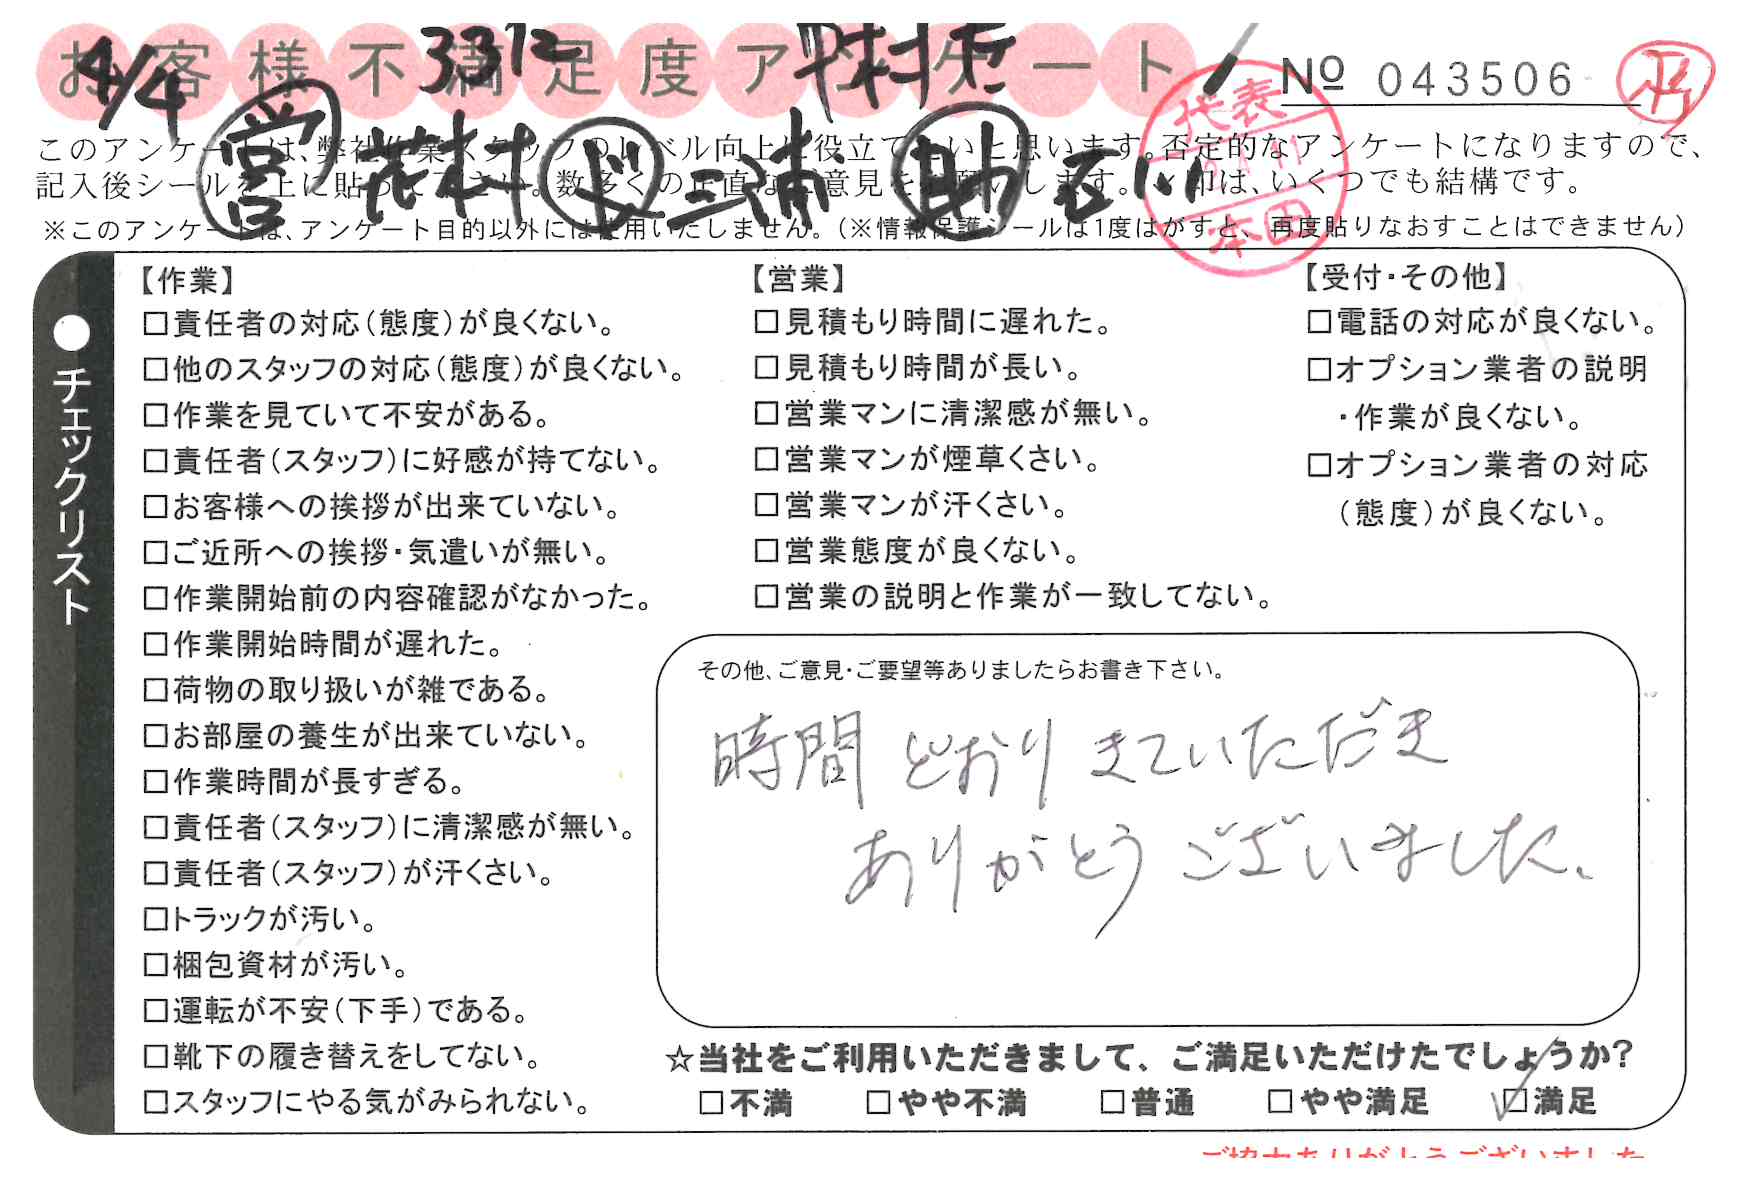 お客様不満足度アンケート
4/4 3312
№ 043506
代表
本田
営 ド 三浦 助 石川
このアンケートは、弊社作業スタッフのレベル向上に役立てたいと思います。否定的なアンケートになりますので、
記入後シールを上に貼って下さい。数多くの正直なご意見をお願いします。✓印は、いくつでも結構です。
※このアンケートは、アンケート目的以外には使用いたしません。(※情報保護シールは1度はがすと、再度貼りなおすことはできません)
●チェックリスト
【作業】
□責任者の対応(態度)が良くない。
□他のスタッフの対応(態度)が良くない。
□作業を見ていて不安がある。
□責任者(スタッフ)に好感が持てない。
□お客様への挨拶が出来ていない。
□ご近所への挨拶・気遣いが無い。
□作業開始前の内容確認がなかった。
□作業開始時間が遅れた。
□荷物の取り扱いが雑である。
□お部屋の養生が出来ていない。
□作業時間が長すぎる。
□責任者(スタッフ)に清潔感が無い。
□責任者(スタッフ)が汗くさい。
□トラックが汚い。
□梱包資材が汚い。
□運転が不安(下手)である。
□靴下の履き替えをしてない。
□スタッフにやる気がみられない。
【営業】
□見積もり時間に遅れた。
□見積もり時間が長い。
□営業マンに清潔感が無い。
□営業マンが煙草くさい。
□営業マンが汗くさい。
□営業態度が良くない。
□営業の説明と作業が一致してない。
【受付・その他】
□電話の対応が良くない。
□オプション業者の説明
・作業が良くない。
□オプション業者の対応
(態度)が良くない。
その他、ご意見・ご要望等ありましたらお書き下さい。
時間どおりきていただき
ありがとうございました。
☆当社をご利用いただきまして、ご満足いただけたでしょうか?
□不満 □やや不満 □普通 □やや満足 ☑満足
ご協力ありがとうございました